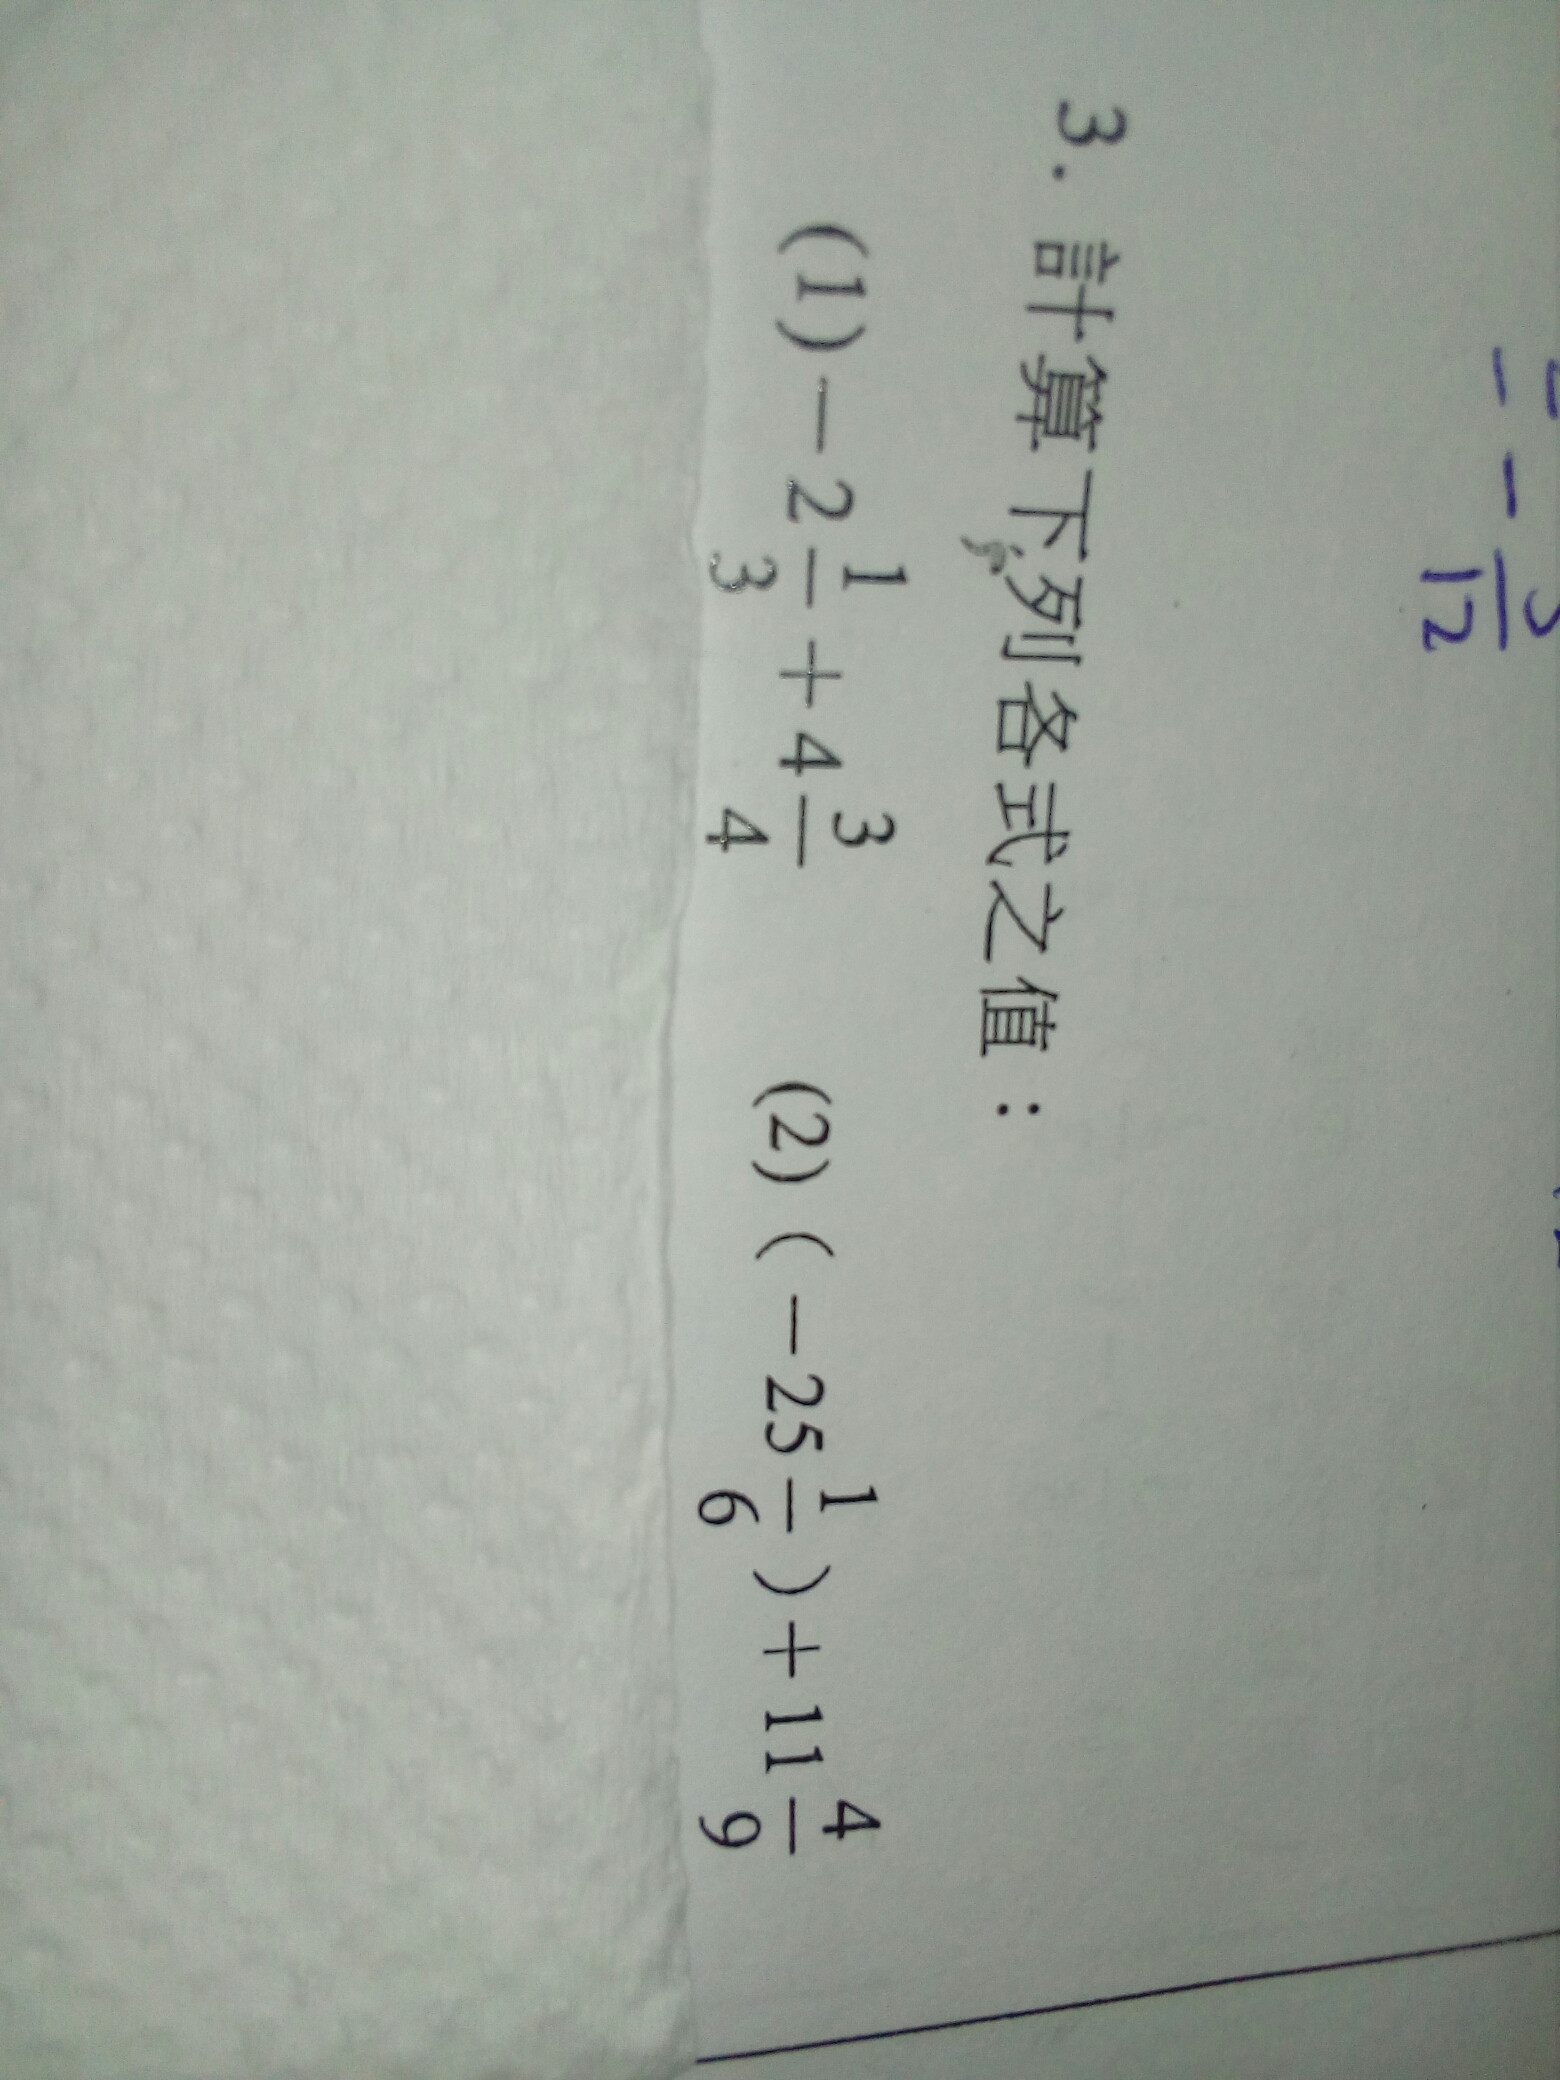 = - —/12
3. 計算下列各式之值：
(1) －2 1/3 ＋4 3/4  (2) (－25 1/6 )＋11 4/9